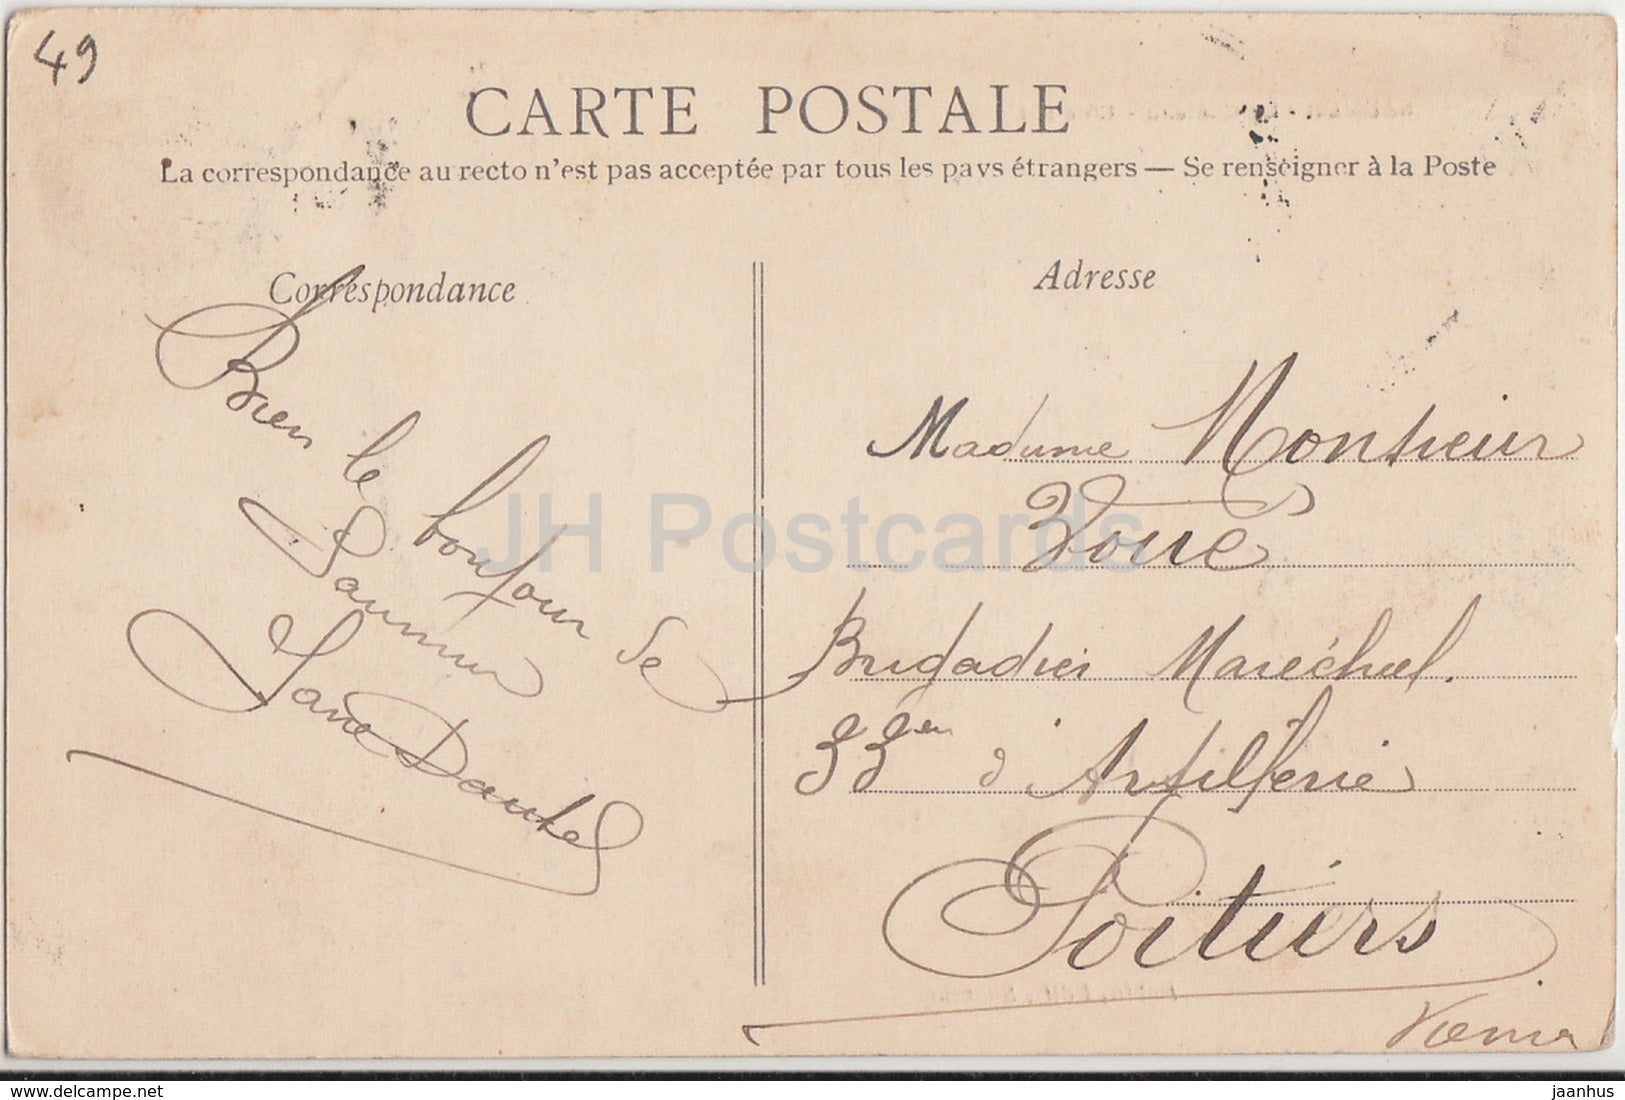 49
CARTE POSTALE
La correspondance au recto n'est pas acceptée par tous les pays étrangers — Se renseigner à la Poste
Correspondance
Bien le bonjour de
Saumur
Adresse
Madame Monsieur
Brigadier Maréchal.
33en d'Artillerie
Poitiers
JH Postcards
jaanhus.ecrater.com
jaanhus